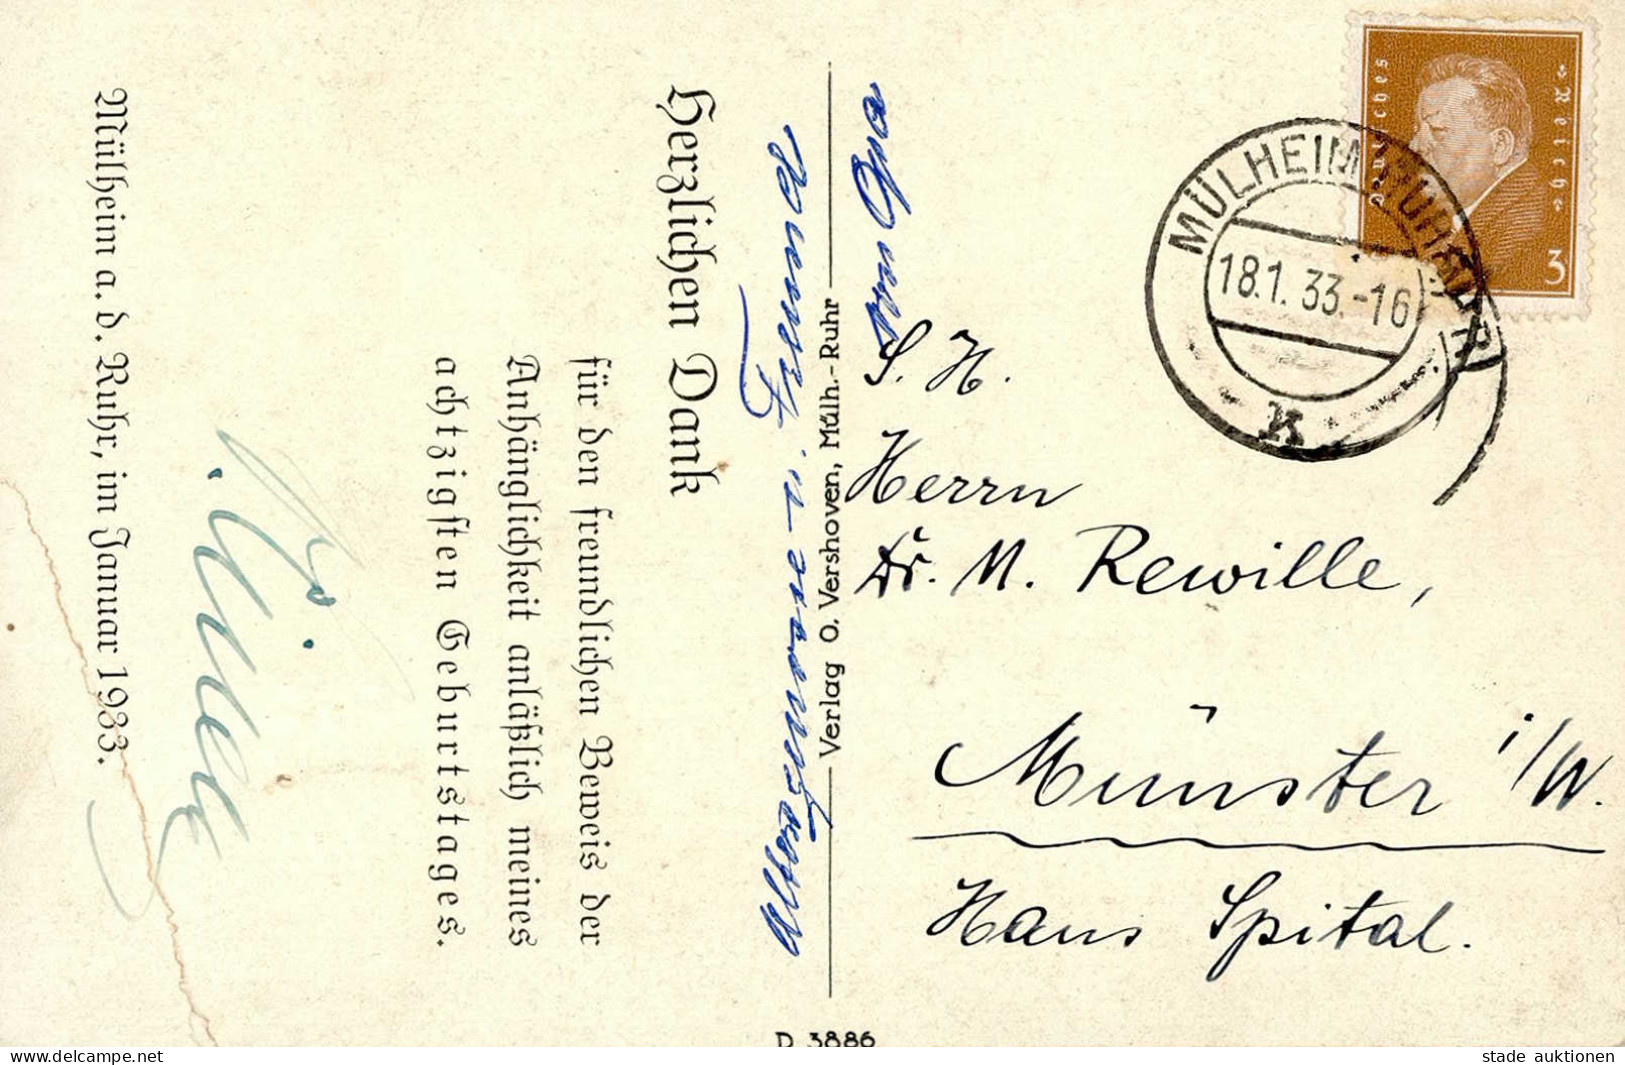 Herzlichen Dank
für den freundlichen Beweis der
Anhänglichkeit anläßlich meines
achtzigsten Geburtstages.
Mülheim a. d. Ruhr, im Januar 1933.
Verlag O. Vershoven, Mülh.-Ruhr
vom Opa
D 3886
Deutsches Reich
3
MÜLHEIM (RUHR)
18.1.33.-16
K
S. H.
Herrn
Dr. M. Rewille,
Münster i/W.
Haus Spital.
www.delcampe.net
stade auktionen